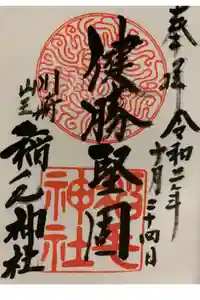 奉拝 令和 年
十月二十四日
健勝堅固
川崎
山王
稲毛神社
神社